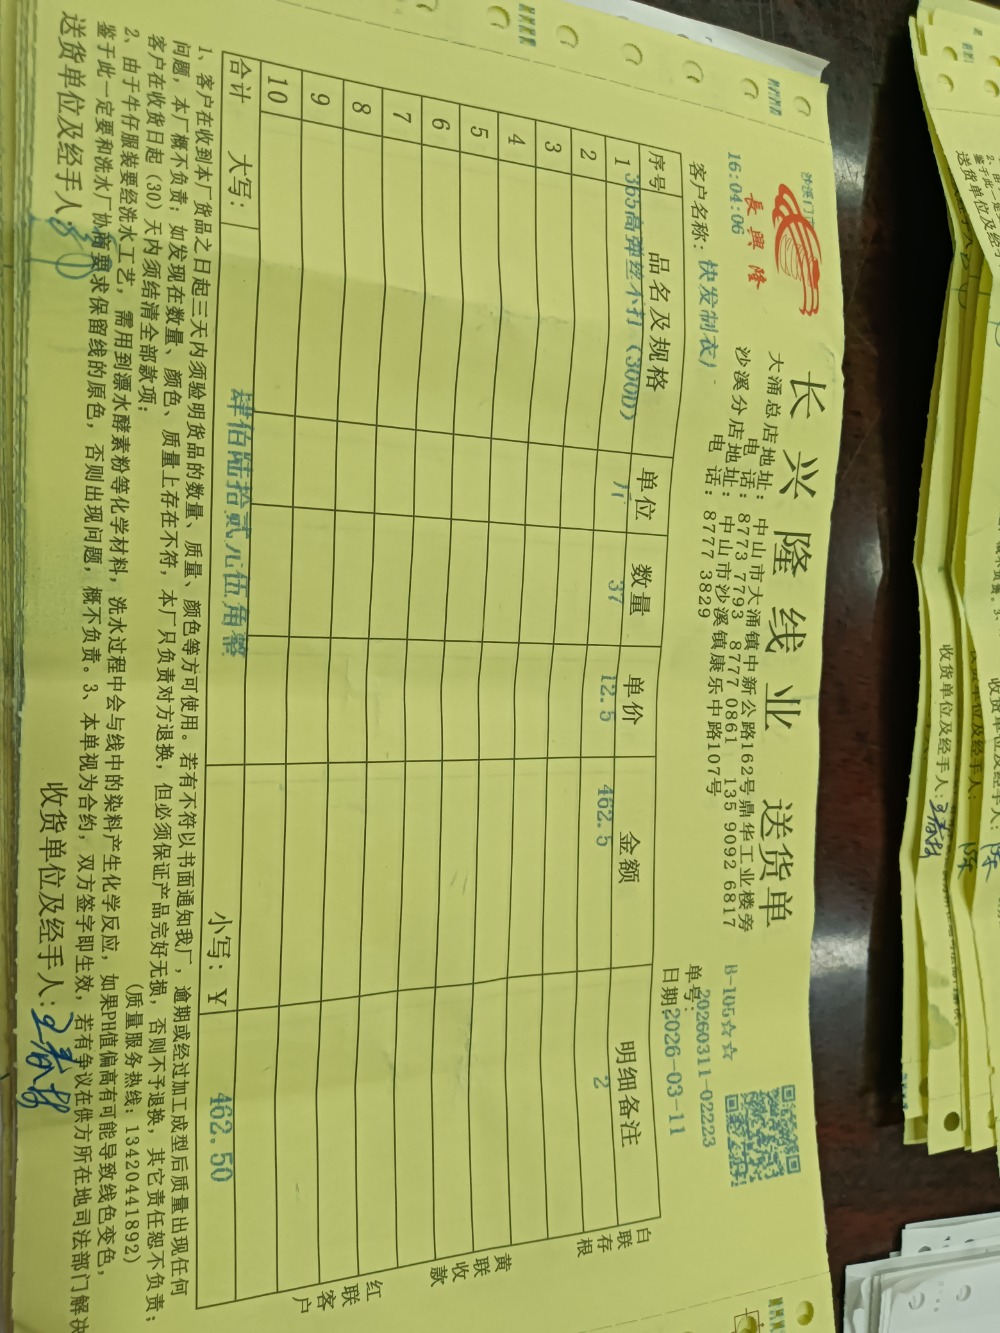 长兴隆线业 送货单
長興隆
沙溪门
16:04:06
大涌总店地址：中山市大涌镇中新公路162号鼎华工业楼旁
电话：8773 7793 8777 0861 135 9092 6817
沙溪分店地址：中山市沙溪镇康乐中路107号
电话：8777 3829
B-105☆☆
单号：20260311-02223
客户名称：快发制衣）
日期2026-03-11
序号 品名及规格 单位 数量 单价 金额 明细备注
1 365高弹丝不打（300D） 斤 37 12.5 462.5 2
2
3
4
5
6
7
8
9
10
合计 大写：肆佰陆拾贰元伍角整 小写：￥ 462.50
白联存根
黄联收款
红联客户
1、客户在收到本厂货品之日起三天内须验明货品的数量、质量、颜色等方可使用。若有不符以书面通知我厂，逾期或经过加工成型后质量出现任何
问题，本厂概不负责；如发现在数量、颜色、质量上存在不符，本厂只负责对方退换，但必须保证产品完好无损，否则不予退换，其它责任恕不负责；
客户在收货日起（30）天内须结清全部款项；
（质量服务热线：13420441892）
2、由于牛仔服装要经洗水工艺，需用到漂水酵素粉等化学材料，洗水过程中会与线中的染料产生化学反应，如果PH值偏高有可能导致线色变色，
鉴于此一定要和洗水厂协商要求保留线的原色，否则出现问题，概不负责。3、本单视为合约，双方签字即生效，若有争议在供方所在地司法部门解决
送货单位及经手人：
收货单位及经手人：
送货单位及经
收货单位及经手人：